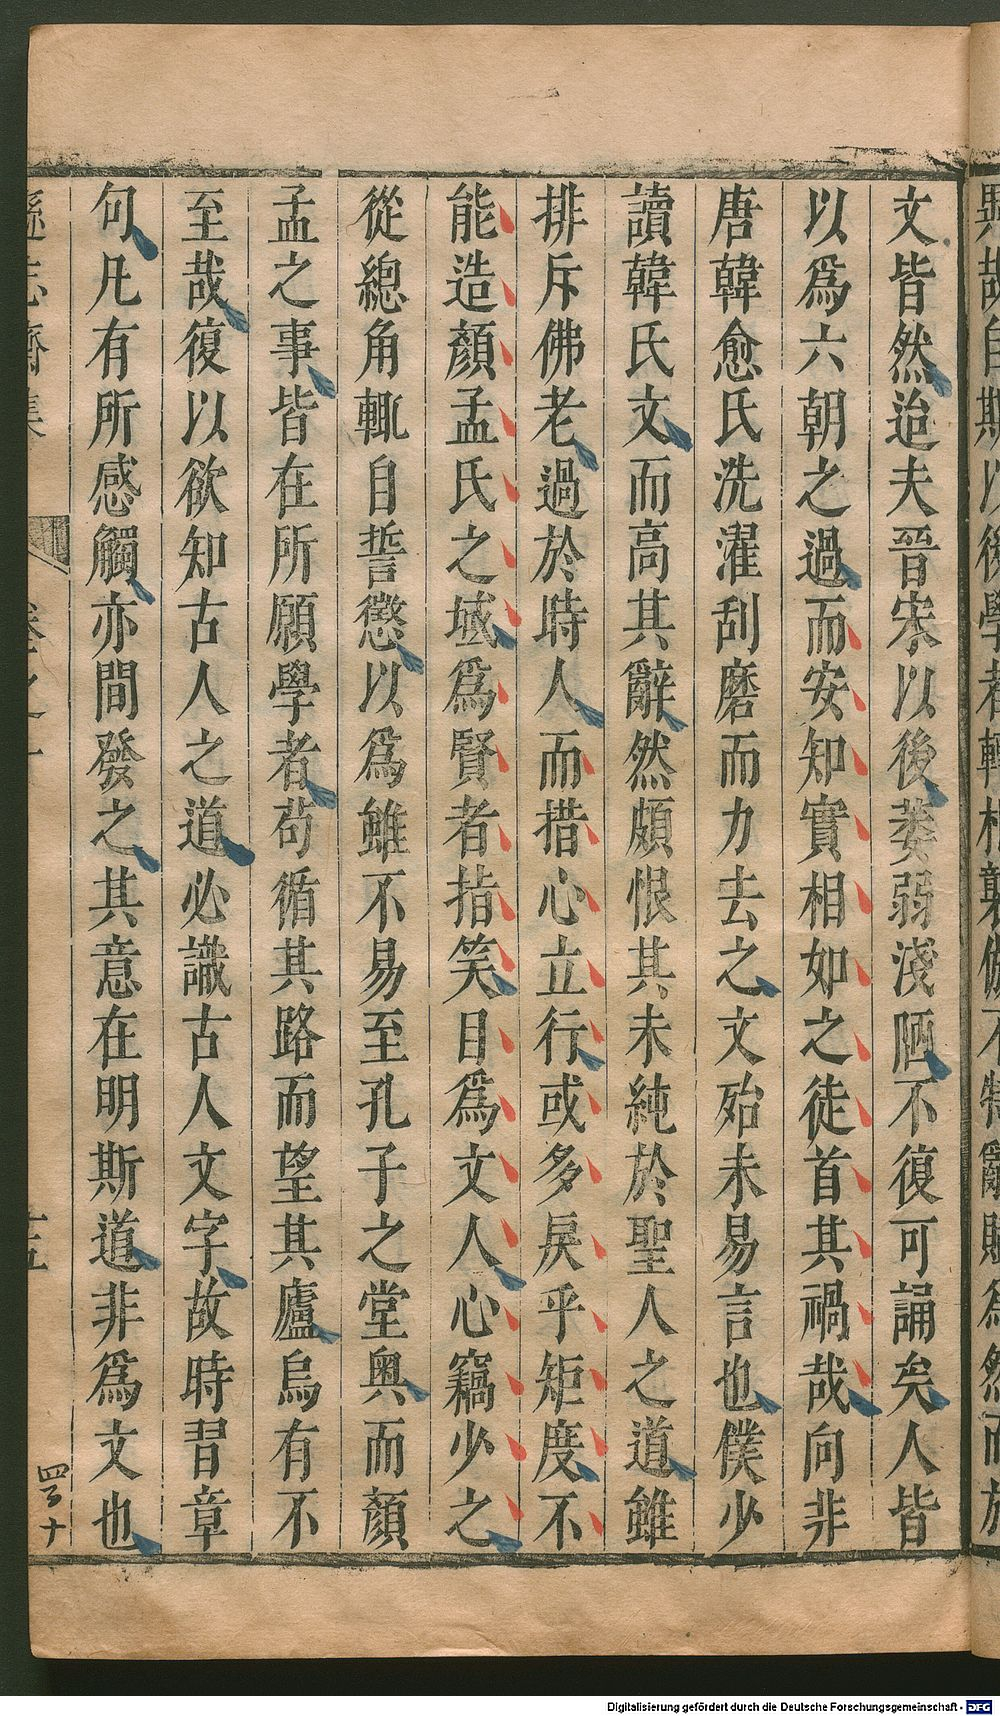 文皆然迨夫晉宋以後萎弱淺陋不復可誦矣人皆
以為六朝之過而安知實相如之徒首其禍哉向非
唐韓愈氏洗濯刮磨而力去之文殆未易言也僕少
讀韓氏文而高其辭然頗恨其未純於聖人之道雖
排斥佛老過於時人而措心立行或多戾乎矩度不
能造顏孟氏之域為賢者指笑目為文人心竊少之
從總角輒自誓懲以為雖不易至孔子之堂奧而顏
孟之事皆在所願學者苟循其路而望其廬烏有不
至哉復以欲知古人之道必識古人文字故時習章
句凡有所感觸亦間發之其意在明斯道非為文也
Digitalisierung gefördert durch die Deutsche Forschungsgemeinschaft - DFG